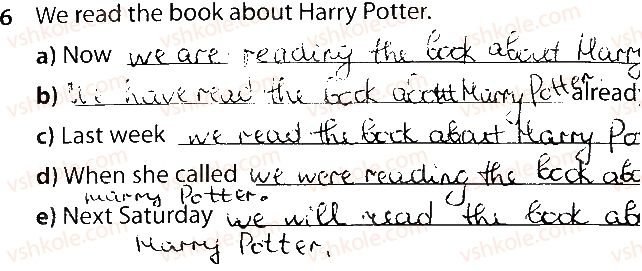 6 We read the book about Harry Potter.
a) Now we are reading the book about Harry
b) We have read the book about Harry Potter alread
c) Last week we read the book about Harry Po
d) When she called we were reading the book abo
Harry Potter.
e) Next Saturday we will read the book ab
Harry Potter.